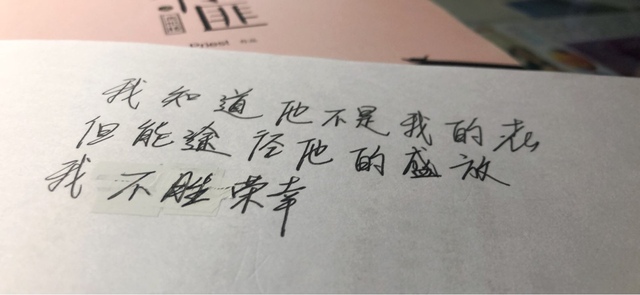 匪
Priest
我知道他不是我的花
但能途径他的盛放
我不胜荣幸